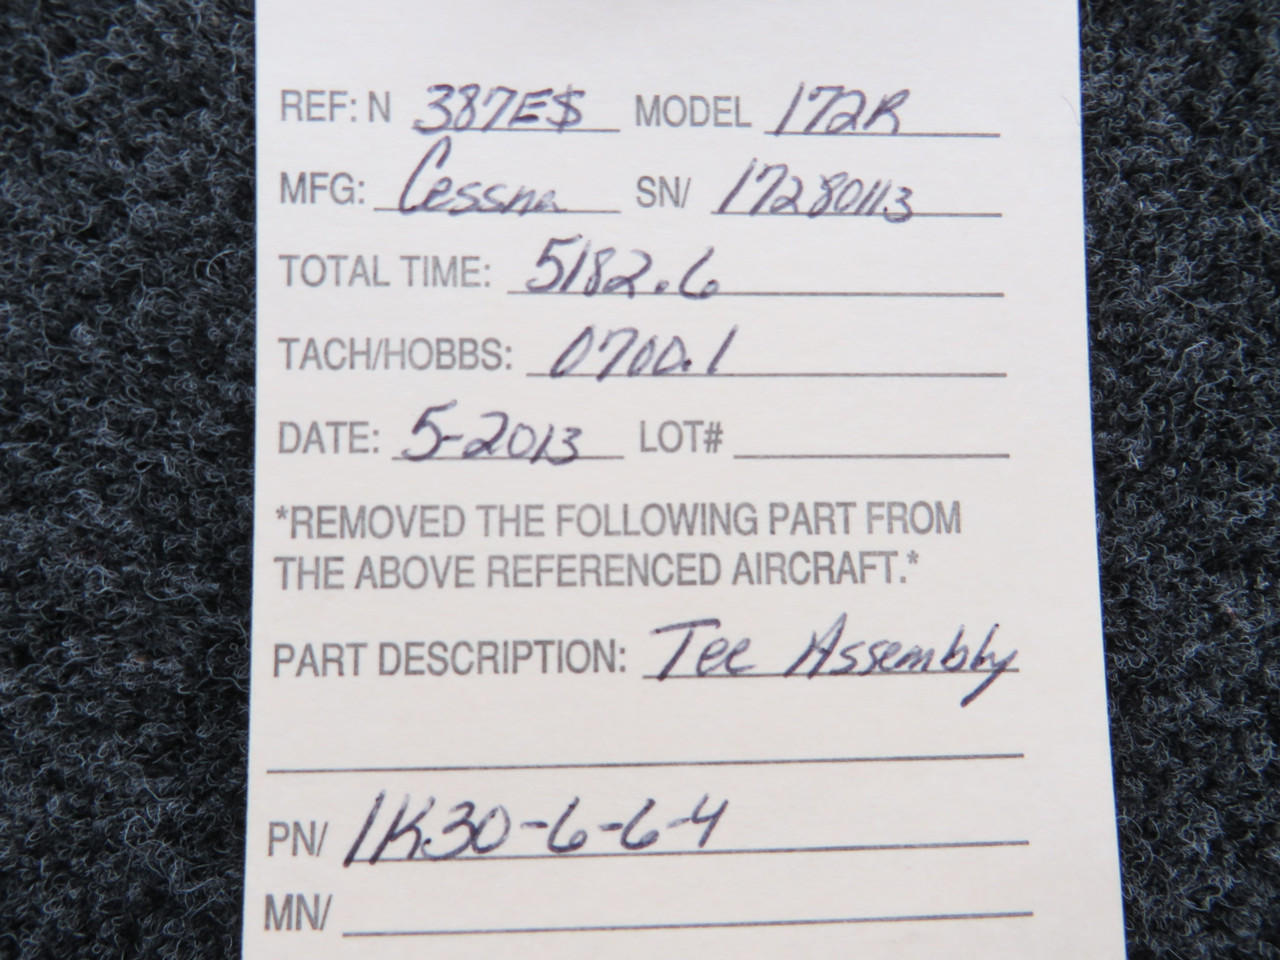 REF: N 387ES MODEL 172R
MFG: Cessna SN/ 17280113
TOTAL TIME: 5182.6
TACH/HOBBS: 0700.1
DATE: 5-2013 LOT#
*REMOVED THE FOLLOWING PART FROM
THE ABOVE REFERENCED AIRCRAFT.*
PART DESCRIPTION: Tee Assembly
PN/ 1K30-6-6-4
MN/